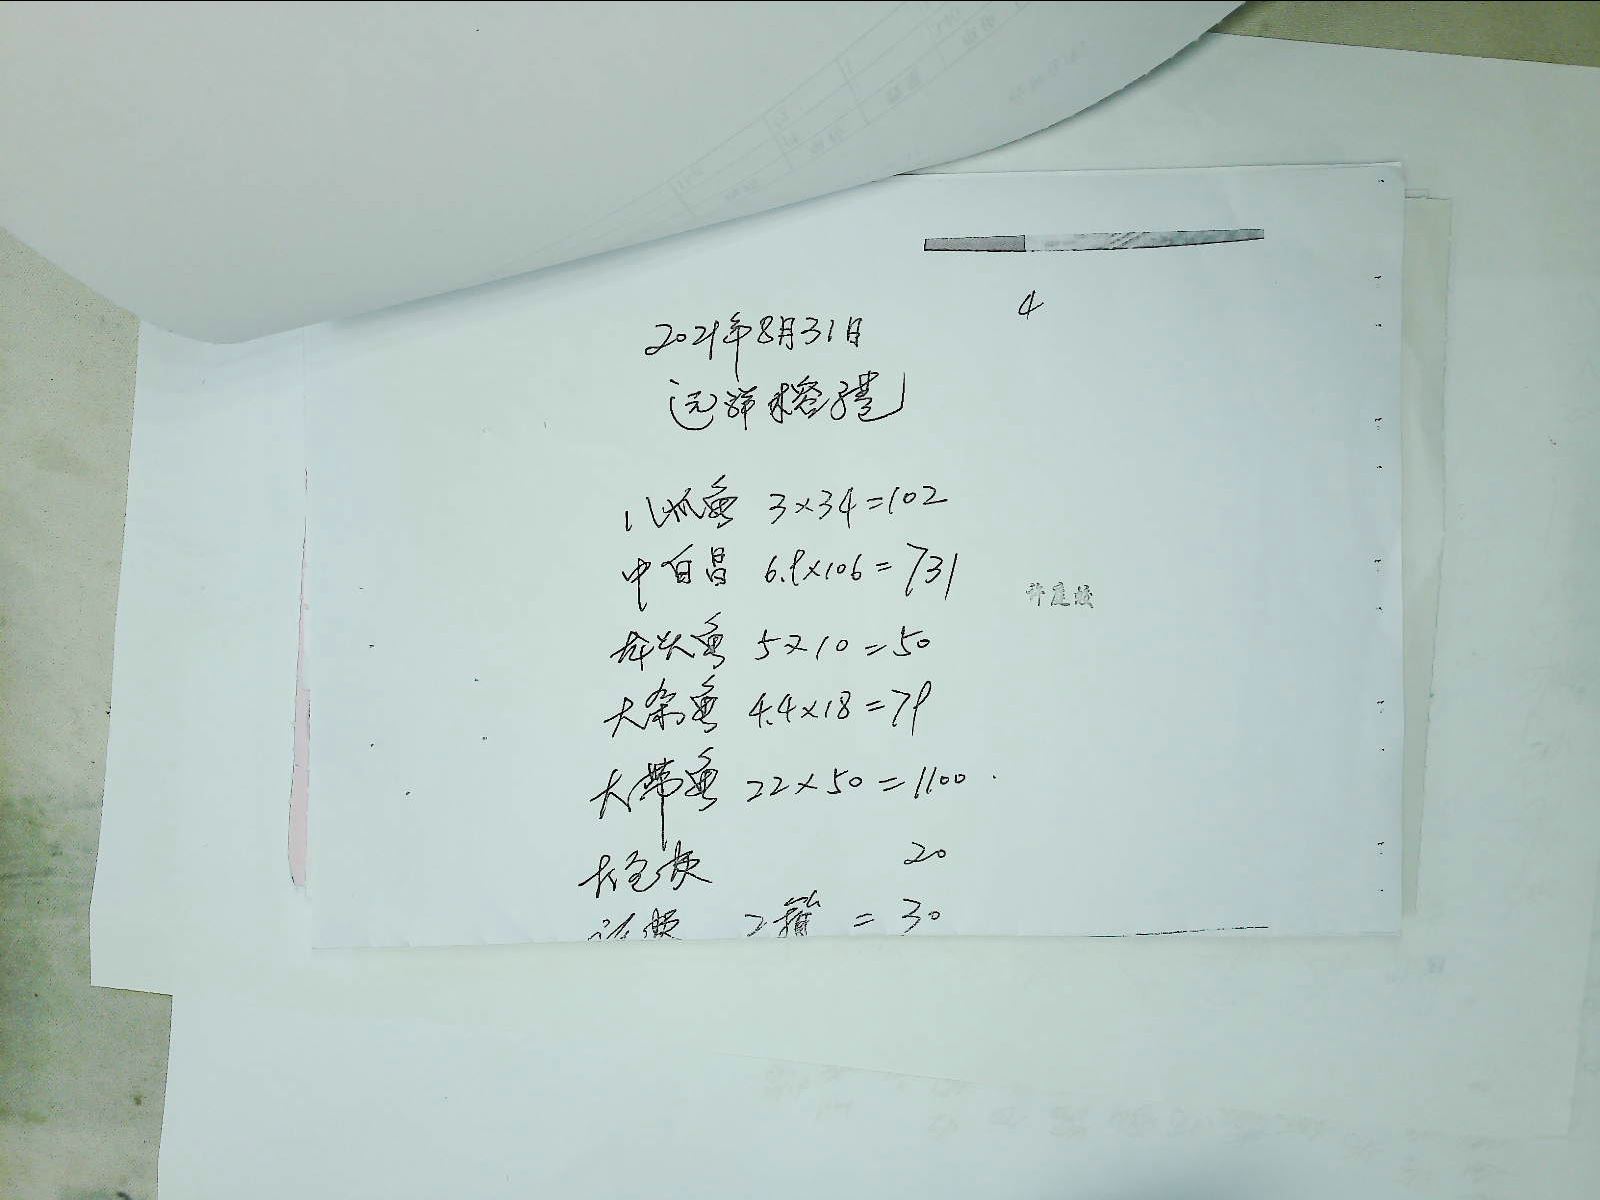 4
2021年8月31日
远洋
八爪鱼 3×34=102
中白昌 6.9×106=731
龙头鱼 5×10=50
大杂鱼 4.4×18=79
大带鱼 22×50=1100
20
费 2箱 = 30